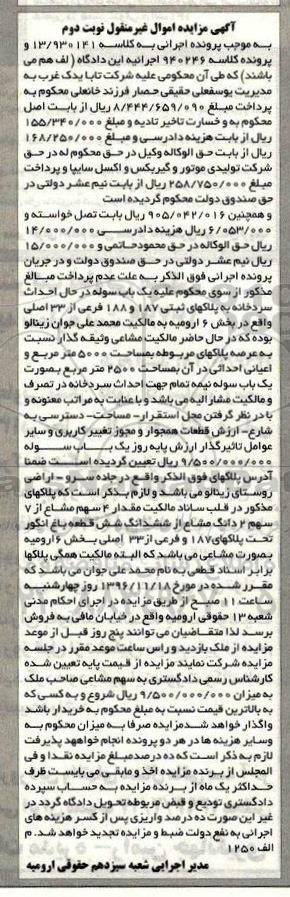 آگهی مزایده اموال غیرمنقول نوبت دوم
به موجب پرونده اجرائی به کلاسه ۱۳/۹۳۰۱۴۱ و
پرونده کلاسه ۹۴۰۲۴۶ اجرائیه این دادگاه ( لف هم می
باشند) که طی آن محکومی علیه شرکت تابا یدک غرب به
مدیریت یوسفعلی حقیقی حصار فرزند خانعلی محکوم به
پرداخت مبلغ ۸/۴۴۴/۶۵۹/۰۹۰ ریال از بابت اصل
محکوم به و خسارت تاخیر تادیه و مبلغ ۱۵۵/۳۴۰/۰۰۰
ریال از بابت هزینه دادرسی و مبلغ ۱۶۸/۲۵۰/۰۰۰
ریال از بابت حق الوکاله وکیل در حق محکوم له در حق
شرکت تولیدی موتور و گیربکس و اکسل سایپا و پرداخت
مبلغ ۲۵۸/۷۵۰/۰۰۰ ریال از بابت نیم عشر دولتی در
حق صندوق دولت محکوم گردیده است
و همچنین ۹۰۵/۰۴۲/۰۱۶ ریال بابت اصل خواسته و
۶/۰۵۳/۰۰۰ ریال هزینه دادرسی ۱۴/۰۰۰/۰۰۰
ریال حق الوکاله در حق محمود حاتمی و ۱۵/۰۰۰/۰۰۰
ریال نیم عشر دولتی در حق صندوق دولت و در جریان
پرونده اجرائی فوق الذکر به علت عدم پرداخت مبالغ
مذکور از سوی محکوم علیه یک باب سوله در حال احداث
سردخانه به پلاکهای ثبتی ۱۸۷ و ۱۸۸ فرعی از ۳۳ اصلی
واقع در بخش ۶ ارومیه به مالکیت محمد علی جوان زینالو
بوده که در حال حاضر مالکیت مشاعی وثیقه گذار نسبت
به عرصه پلاکهای مربوطه بمساحت ۵۰۰۰ متر مربع و
اعیانی احداثی در آن بمساحت ۲۵۰۰ متر مربع بصورت
یک باب سوله نیمه تمام جهت احداث سردخانه در تصرف
و مالکیت مشارالیه می باشد و با عنایت به مراتب معنونه و
با در نظر گرفتن محل استقرار- مساحت- دسترسی به
شارع- ارزش قطعات همجوار و مجوز تغییر کاربری و سایر
عوامل تاثیرگذار ارزش پایه روز یک باب سوله
۹/۵۰۰/۰۰۰/۰۰۰ ریال تعیین گردیده است ضمنا
آدرس پلاکهای فوق الذکر واقع در جاده سرو - اراضی
روستای زینالو می باشد و لازم بذکر است که پلاکهای
مذکور در قلب سند مالکیت مقدار ۴ سهم مشاع از ۷
سهم ۲ دانگ مشاع از ششدانگ شش قطعه باغ انگور
تحت پلاکهای ۱۸۷ و فرعی از ۳۳ اصلی بخش ۶ ارومیه
بصورت مشاعی می باشد که البته مالکیت همگی پلاکها
برابر اسناد قطعی به نام محمد علی جوان می باشد که
مقرر شده در مورخ ۱۳۹۶/۱۱/۱۸ روز چهارشنبه
ساعت ۱۱ صبح از طریق مزایده در اجرای احکام مدنی
شعبه ۱۳ حقوقی ارومیه واقع در خیابان مافی به فروش
برسد لذا متقاضیان می توانند پنج روز قبل از موعد
مزایده از ملک بازدید و راس ساعت موعد مقرر در جلسه
مزایده شرکت نمایند مزایده از قیمت پایه تعیین شده
کارشناس رسمی دادگستری به سهم مشاعی صاحب ملک
به میزان ۹/۵۰۰/۰۰۰/۰۰۰ ریال شروع و به کسی که
به بالاترین قیمت نسبت به مبلغ محکوم به خریدار باشد
واگذار خواهد شد مزایده صرفا به میزان محکوم به
وسایر هزینه ها در هر دو پرونده انجام خواهد پذیرفت
لازم به ذکر است که ده درصد مبلغ مزایده نقدا و فی
المجلس از برنده مزایده اخذ و مابقی می بایست ظرف
حداکثر یک ماه از برنده مزایده به حساب سپرده
دادگستری تودیع و قبض مربوطه تحویل دادگاه گردد در
غیر این صورت ده درصد واریزی پس از کسر هزینه های
اجرائی به نفع دولت ضبط و مزایده تجدید خواهد شد. م
الف ۱۲۵۰
مدیر اجرایی شعبه سیزدهم حقوقی ارومیه